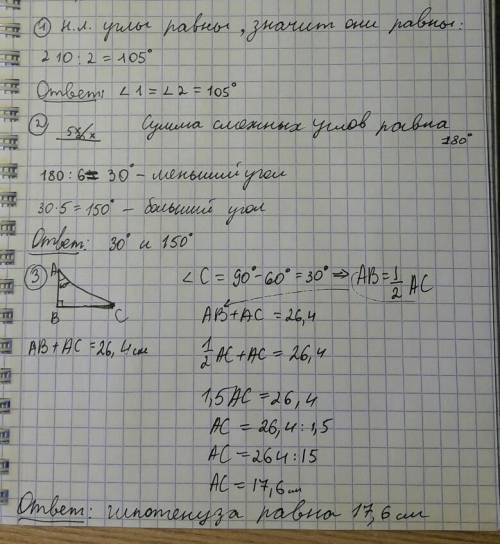 ① н.л. углы равны, значит они равны:
210 : 2 = 105°
Ответ: ∠1 = ∠2 = 105°
② 5x/x Сумма смежных углов равна
180°
180 : 6 = 30° – меньший угол
30·5 = 150° – больший угол
Ответ: 30° и 150°
③ A ∠C = 90° - 60° = 30° ⇒ AB = 1/2 AC
B C AB + AC = 26,4
AB + AC = 26,4 см
1/2 AC + AC = 26,4
1,5 AC = 26,4
AC = 26,4 : 1,5
AC = 264 : 15
AC = 17,6 см
Ответ: гипотенуза равна 17,6 см